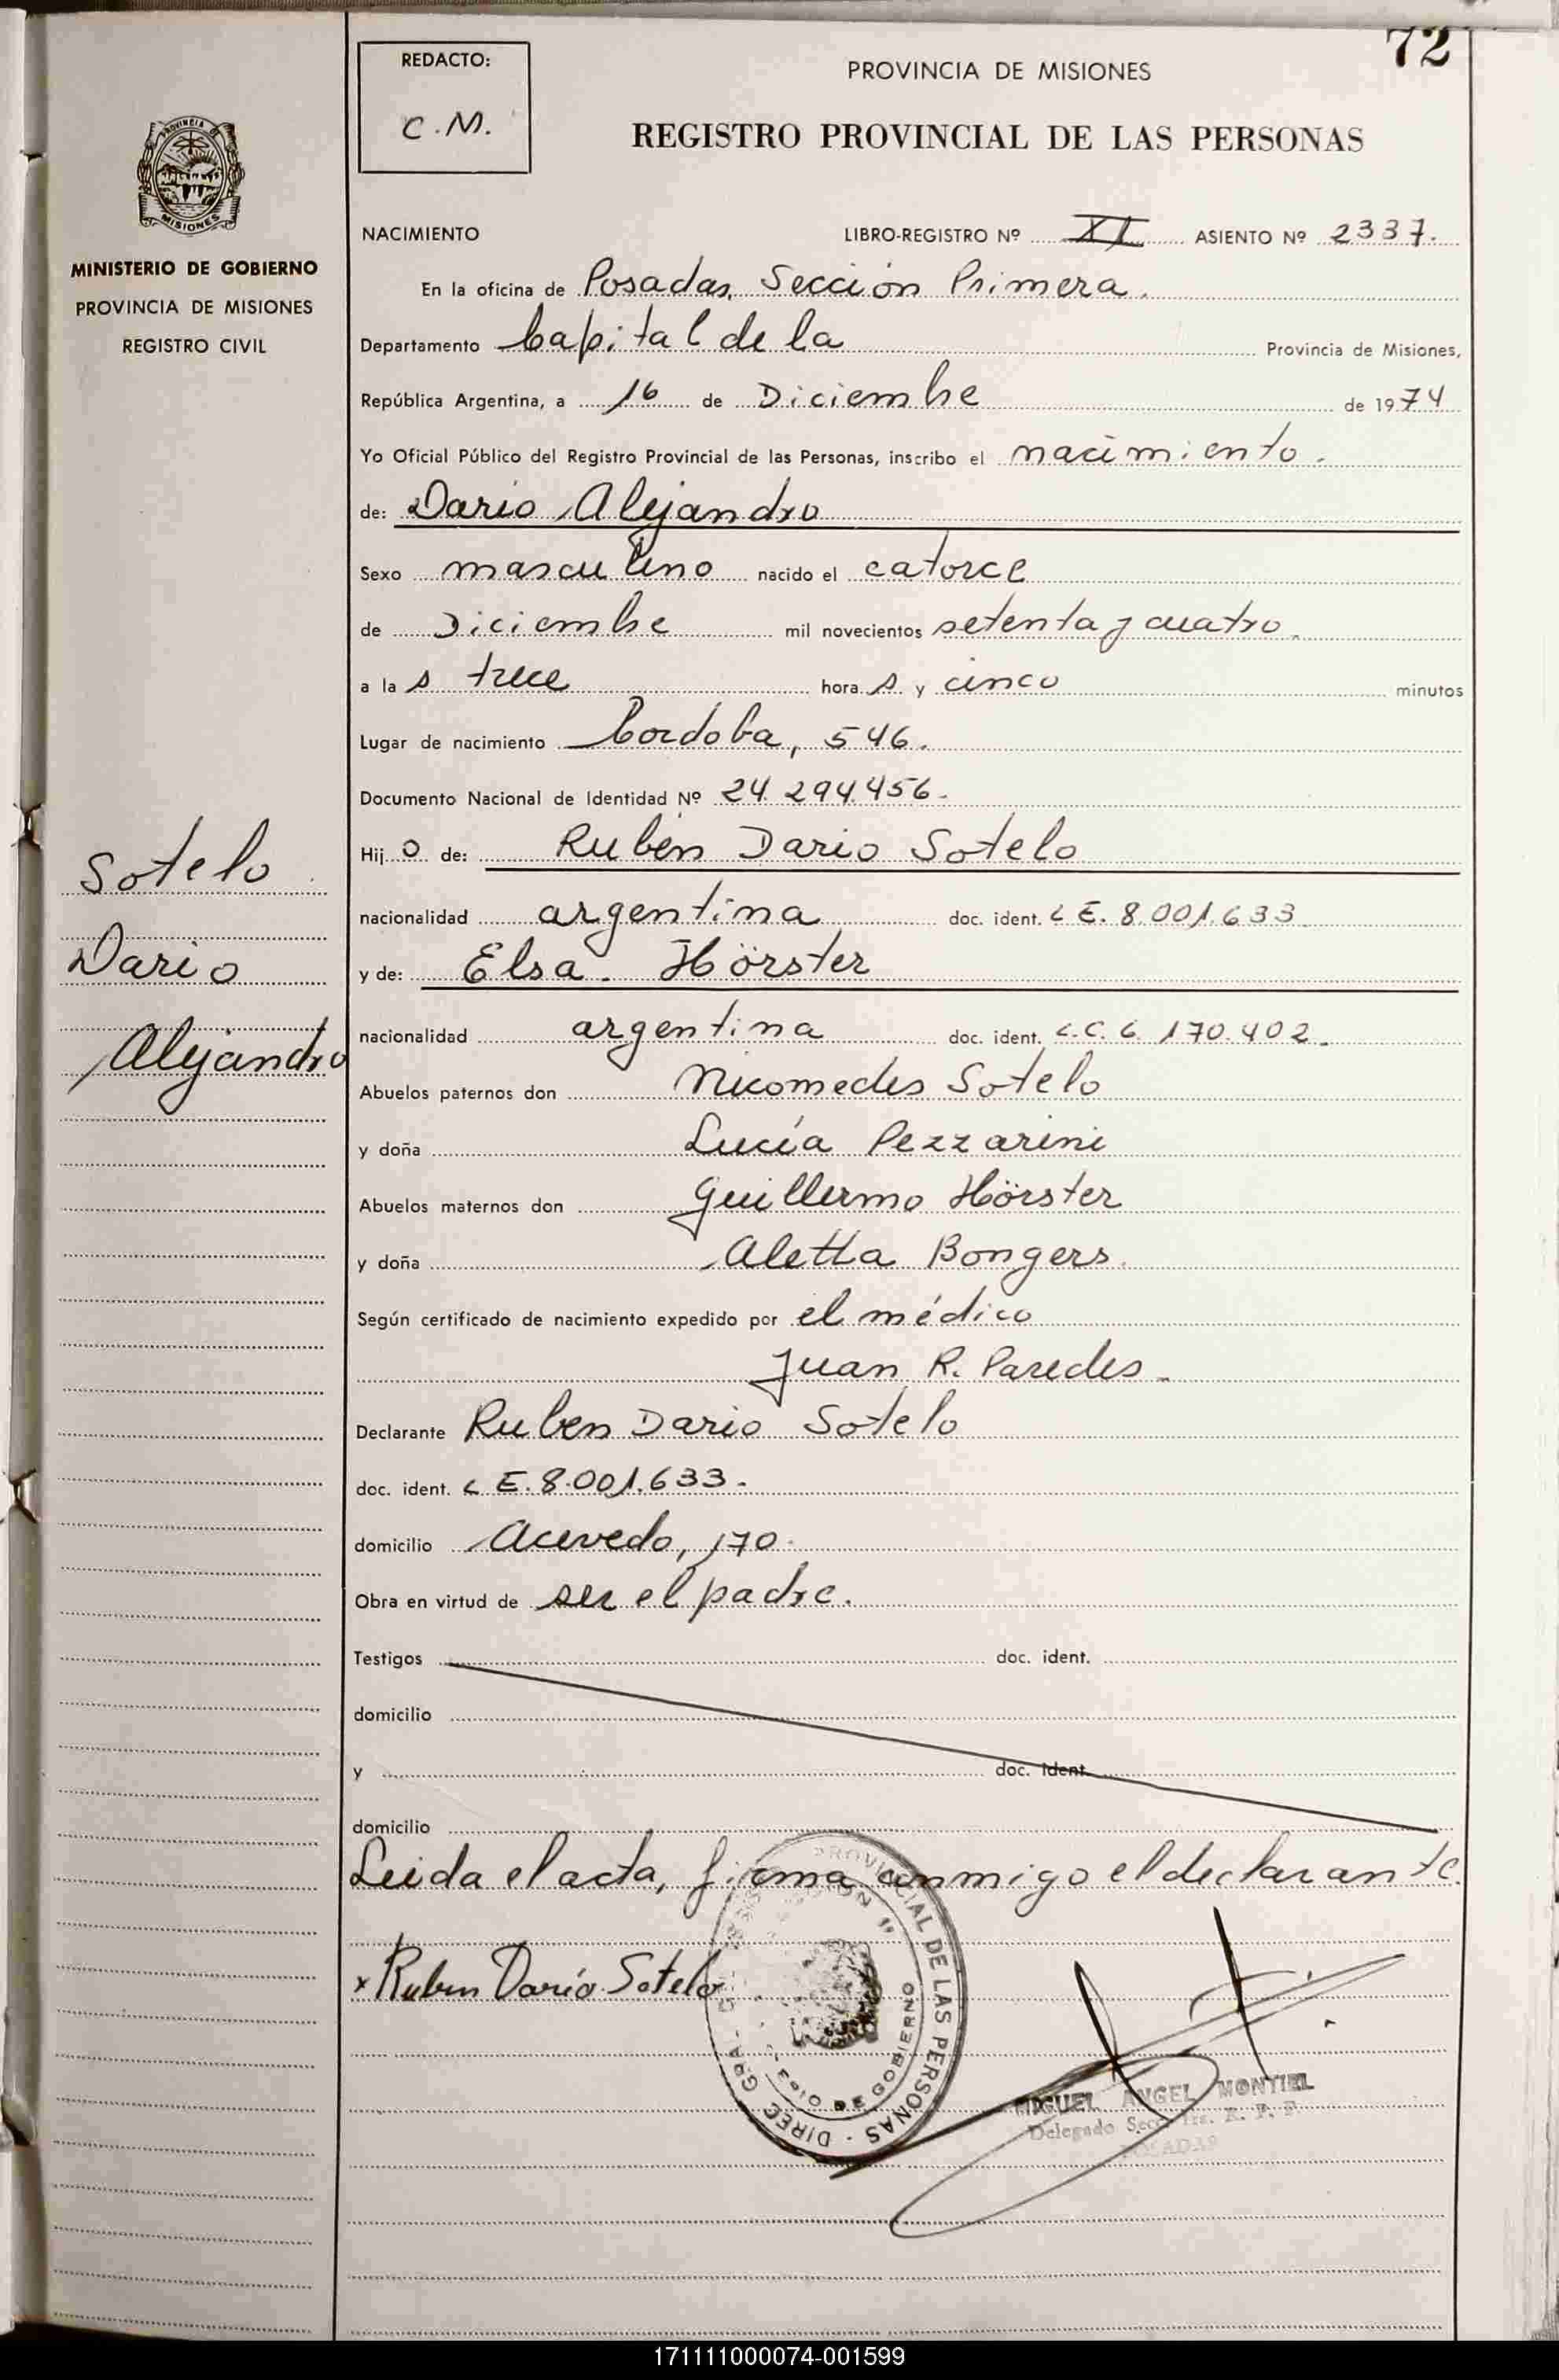 72
REDACTO:
C.M.
PROVINCIA DE MISIONES
REGISTRO PROVINCIAL DE LAS PERSONAS
PROVINCIA DE
MISIONES
MINISTERIO DE GOBIERNO
PROVINCIA DE MISIONES
REGISTRO CIVIL
NACIMIENTO LIBRO-REGISTRO Nº XI ASIENTO Nº 2337.
En la oficina de Posadas, Sección Primera.
Departamento Capital de la Provincia de Misiones,
República Argentina, a 16 de Diciembre de 1974
Yo Oficial Público del Registro Provincial de las Personas, inscribo el nacimiento.
de: Dario Alejandro
Sexo masculino nacido el catorce
de Diciembre mil novecientos setenta y cuatro.
a la s trece hora s y cinco minutos
Lugar de nacimiento Cordoba, 546.
Documento Nacional de Identidad Nº 24.294.456.
Hij o de: Rubén Dario Sotelo
nacionalidad argentina doc. ident. L E. 8.001.633
y de: Elsa. Hörster
nacionalidad argentina doc. ident. L.C. 6.170.402.
Abuelos paternos don Nicomedes Sotelo
y doña Lucía Pezzarini
Abuelos maternos don Guillermo Hörster
y doña Aletta Bongers.
Según certificado de nacimiento expedido por el médico
Juan R. Paredes.
Declarante Ruben Dario Sotelo
doc. ident. L E. 8.001.633.
domicilio Acevedo, 170.
Obra en virtud de ser el padre.
Testigos doc. ident.
domicilio
y doc. ident.
domicilio
Leida el acta, firma conmigo el declarante.
x Ruben Darío Sotelo
Sotelo
Dario
Alejandro
PROVINCIAL DE LAS PERSONAS - DIREC GRAL
DE GOBIERNO
MIGUEL ANGEL MONTIEL
Delegado
POSADAS
171111000074-001599